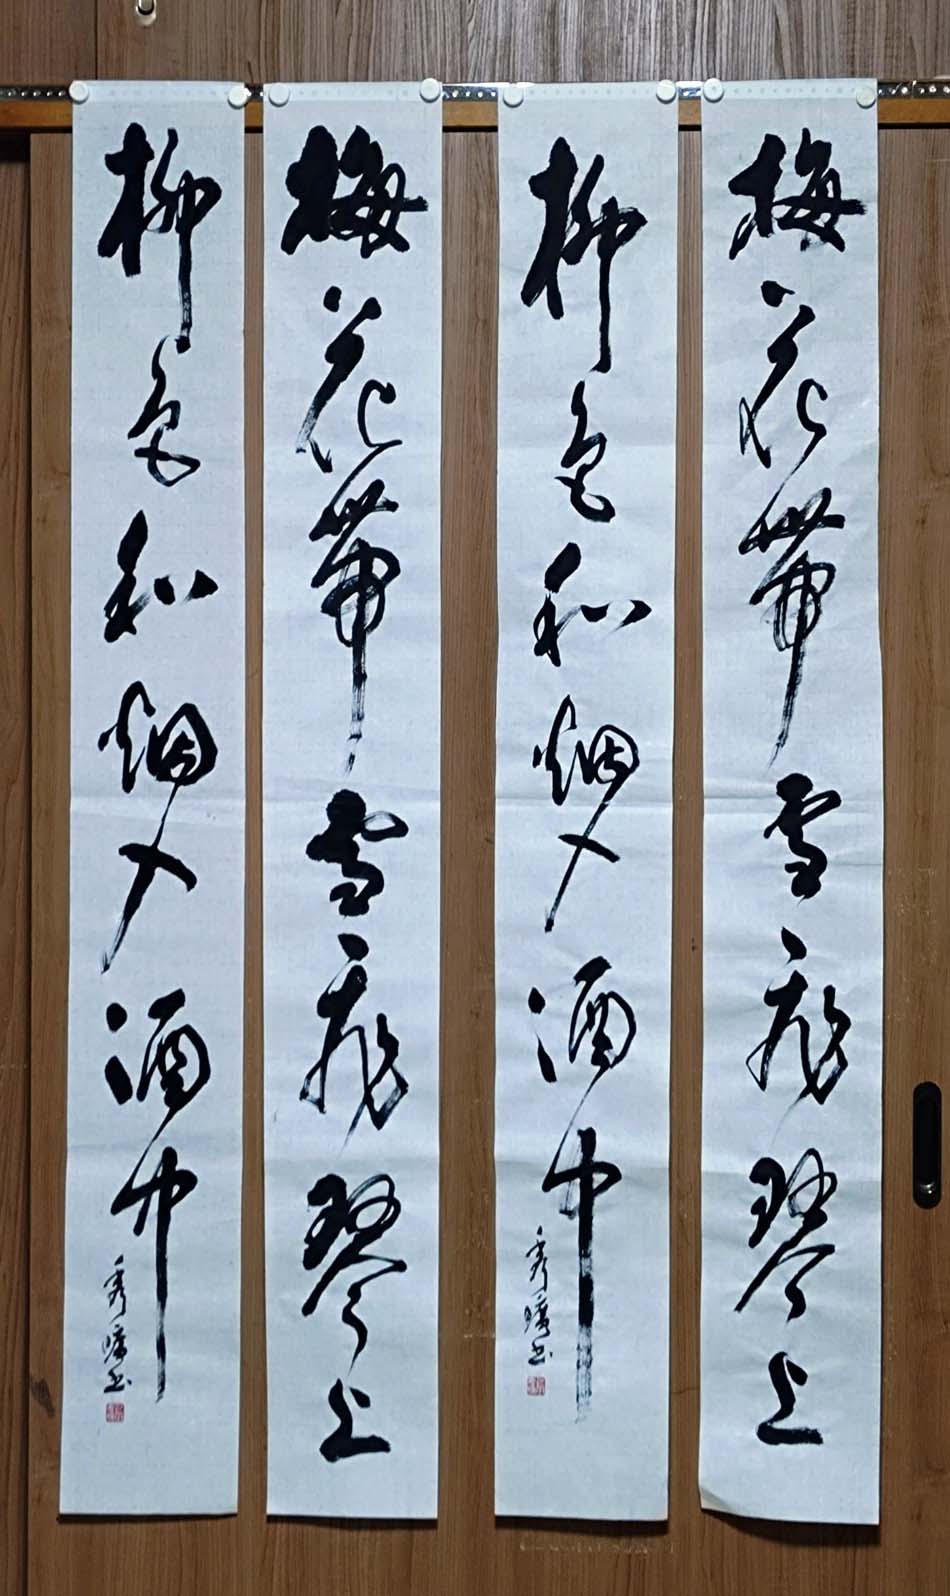 梅花帶雪飛琴上
柳色和烟入酒中
秀㬢书
梅花帶雪飛琴上
柳色和烟入酒中
秀㬢书